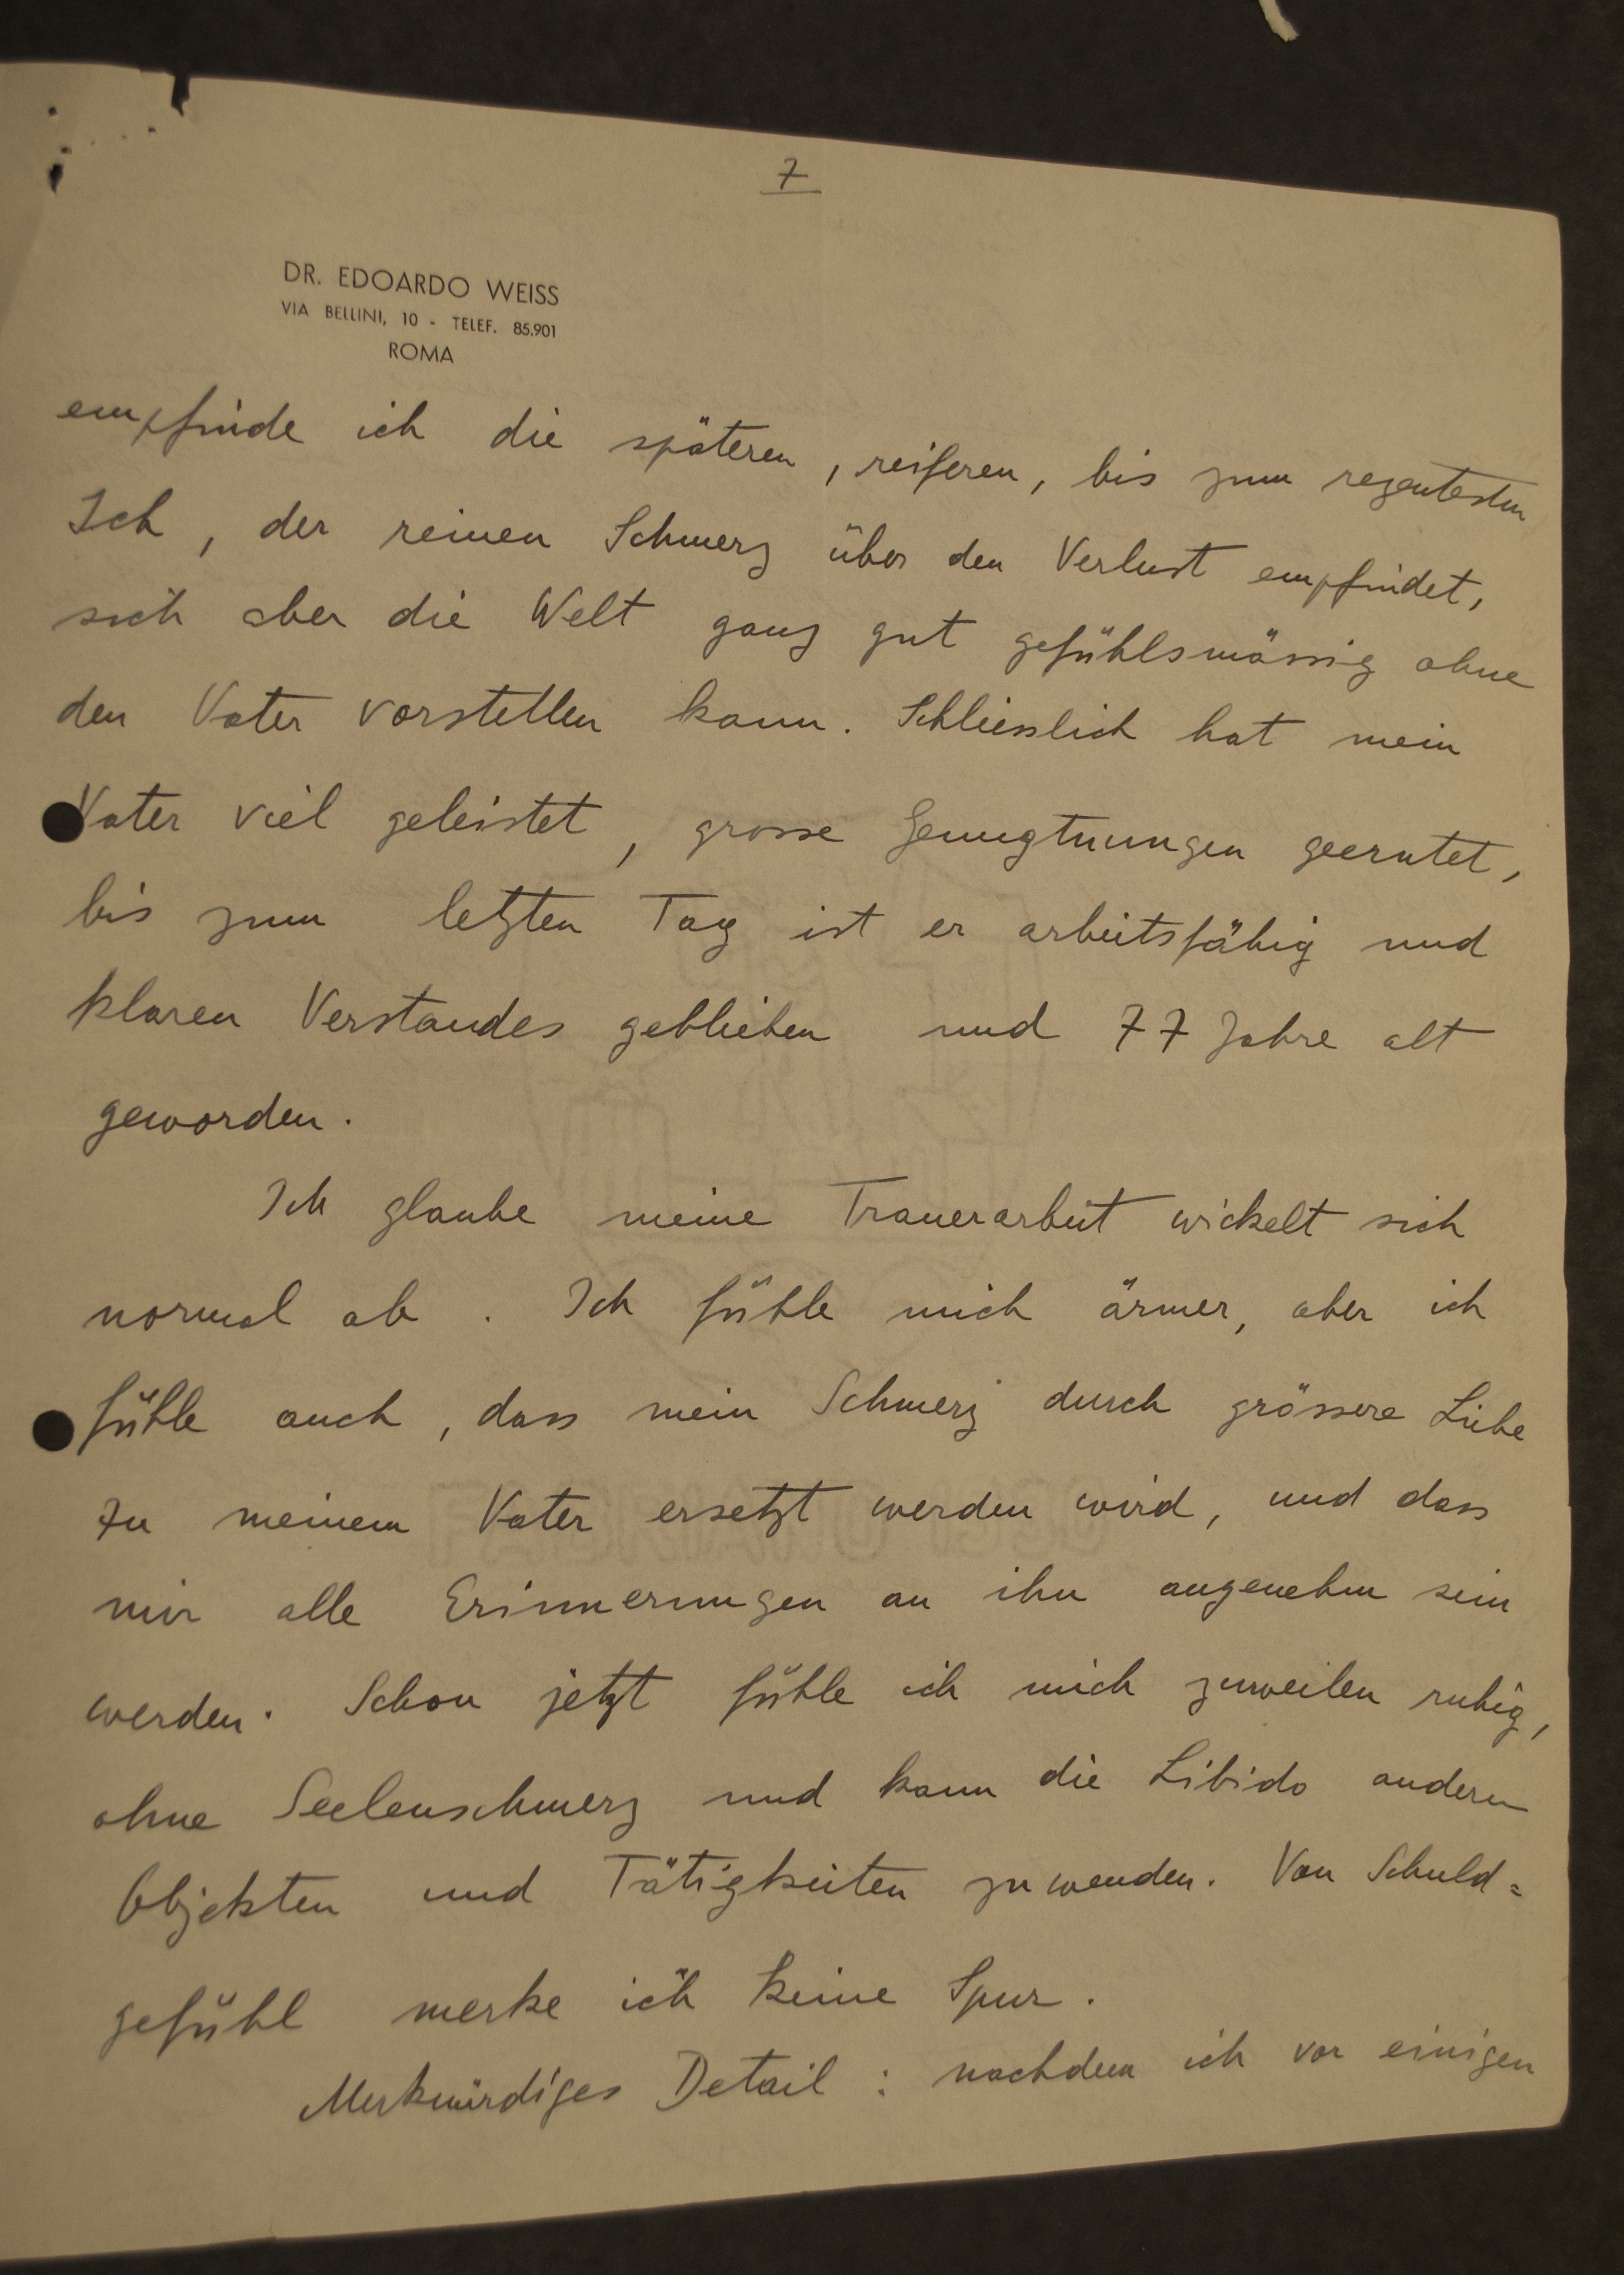 7
DR. EDOARDO WEISS
VIA BELLINI, 10 - TELEF. 85.901
ROMA
empfinde ich die späteren, reiferen, bis zum rezentesten
Ich, der reinen Schmerz über den Verlust empfindet,
sich aber die Welt ganz gut gefühlsmässig ohne
den Vater vorstellen kann. Schliesslich hat mein
Vater viel geleistet, grosse Genugtuungen geerntet,
bis zum letzten Tag ist er arbeitsfähig und
klaren Verstandes geblieben und 77 Jahre alt
geworden.
Ich glaube meine Trauerarbeit wickelt sich
normal ab. Ich fühle mich ärmer, aber ich
fühle auch, dass mein Schmerz durch grössere Liebe
zu meinem Vater ersetzt werden wird, und dass
mir alle Erinnerungen an ihn angenehm sein
werden. Schon jetzt fühle ich mich zuweilen ruhig,
ohne Seelenschmerz und kann die Libido anderen
Objekten und Tätigkeiten zuwenden. Von Schuld=
gefühl merke ich keine Spur.
Merkwürdiges Detail: nachdem ich vor einigen